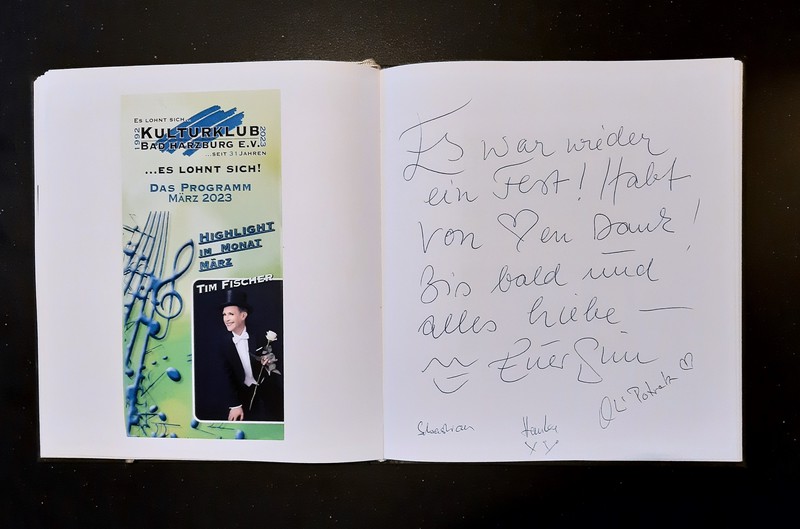 ES LOHNT SICH...
1992
KULTURKLUB
2023
BAD HARZBURG E.V.
...SEIT 31 JAHREN
...ES LOHNT SICH!
DAS PROGRAMM
MÄRZ 2023
HIGHLIGHT
IM MONAT
MÄRZ
TIM FISCHER
Es war wieder
ein Fest! Habt
von ♡en Dank!
Bis bald und
alles Liebe —
Euer Tim
Oli Potratz ♡
Sebastian
Hauke